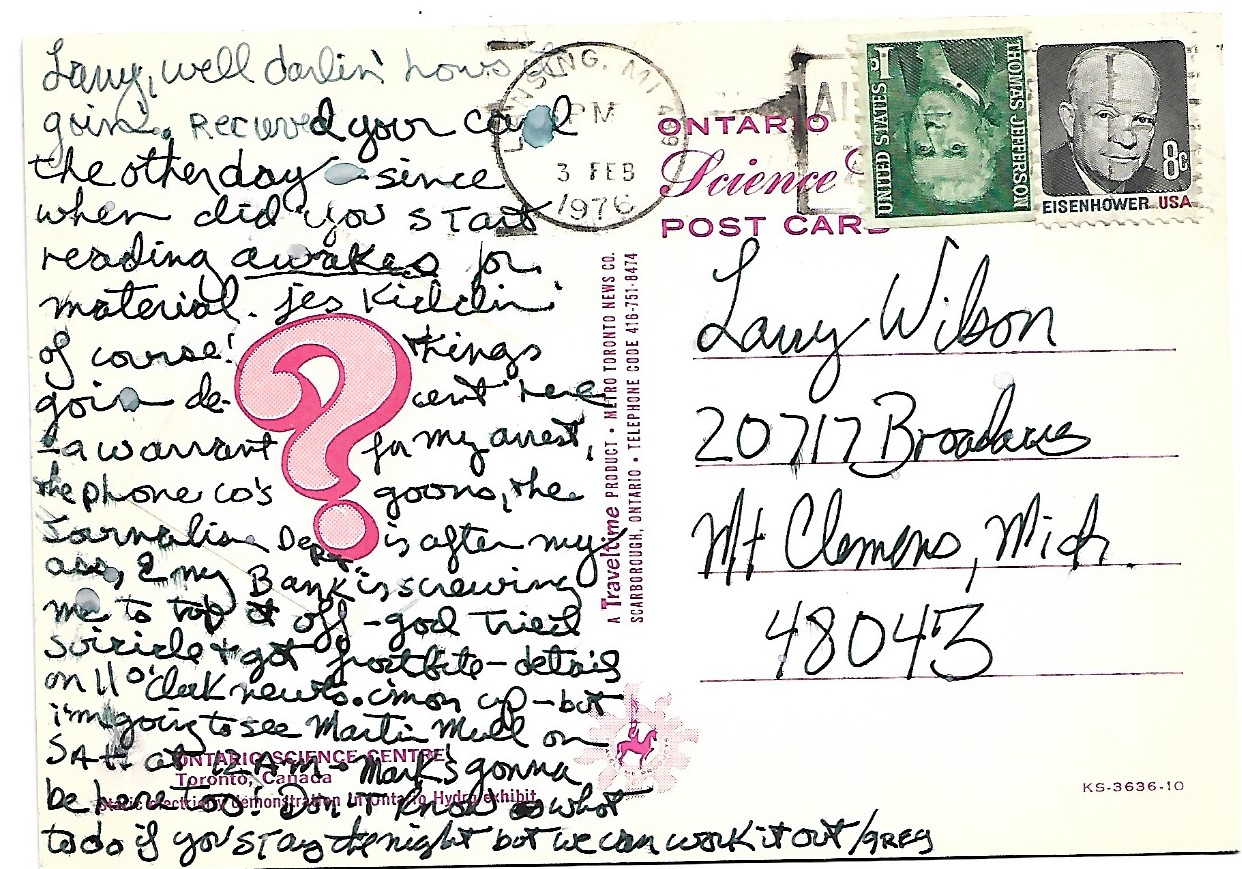 Larry, well darlin' hows it
goin'. Recieved your card
the other day - since
when did you start
reading awakes for
material. jes Kiddin'
of course! things
goin de-cent here
- a warrant for my arrest,
the phone co's goons, the
Jornalism Dept. is after my
ass, & my Bank is screwing
me to top it off - god tried
suicide & got frostbite - details
on 11 o'clock news. c'mon up - but
i'm going to see Martin Mull on
SAt. at 12 A.M. - Mark's gonna
be here too! Don't know what
to do if you stay the night but we can work it out / GREG
ONTARIO SCIENCE CENTRE
Toronto, Canada
Static electricity demonstration in Ontario Hydro exhibit
A Traveltime PRODUCT • METRO TORONTO NEWS CO.
SCARBOROUGH, ONTARIO • TELEPHONE CODE 416-751-8474
LANSING, MI 489
PM
3 FEB
1976
ONTARIO
Science
POST CARD
UNITED STATES 1¢
THOMAS JEFFERSON
8c
EISENHOWER USA
Larry Wilson
20717 Broadacres
Mt Clemens, Mich.
48043
KS-3636-10